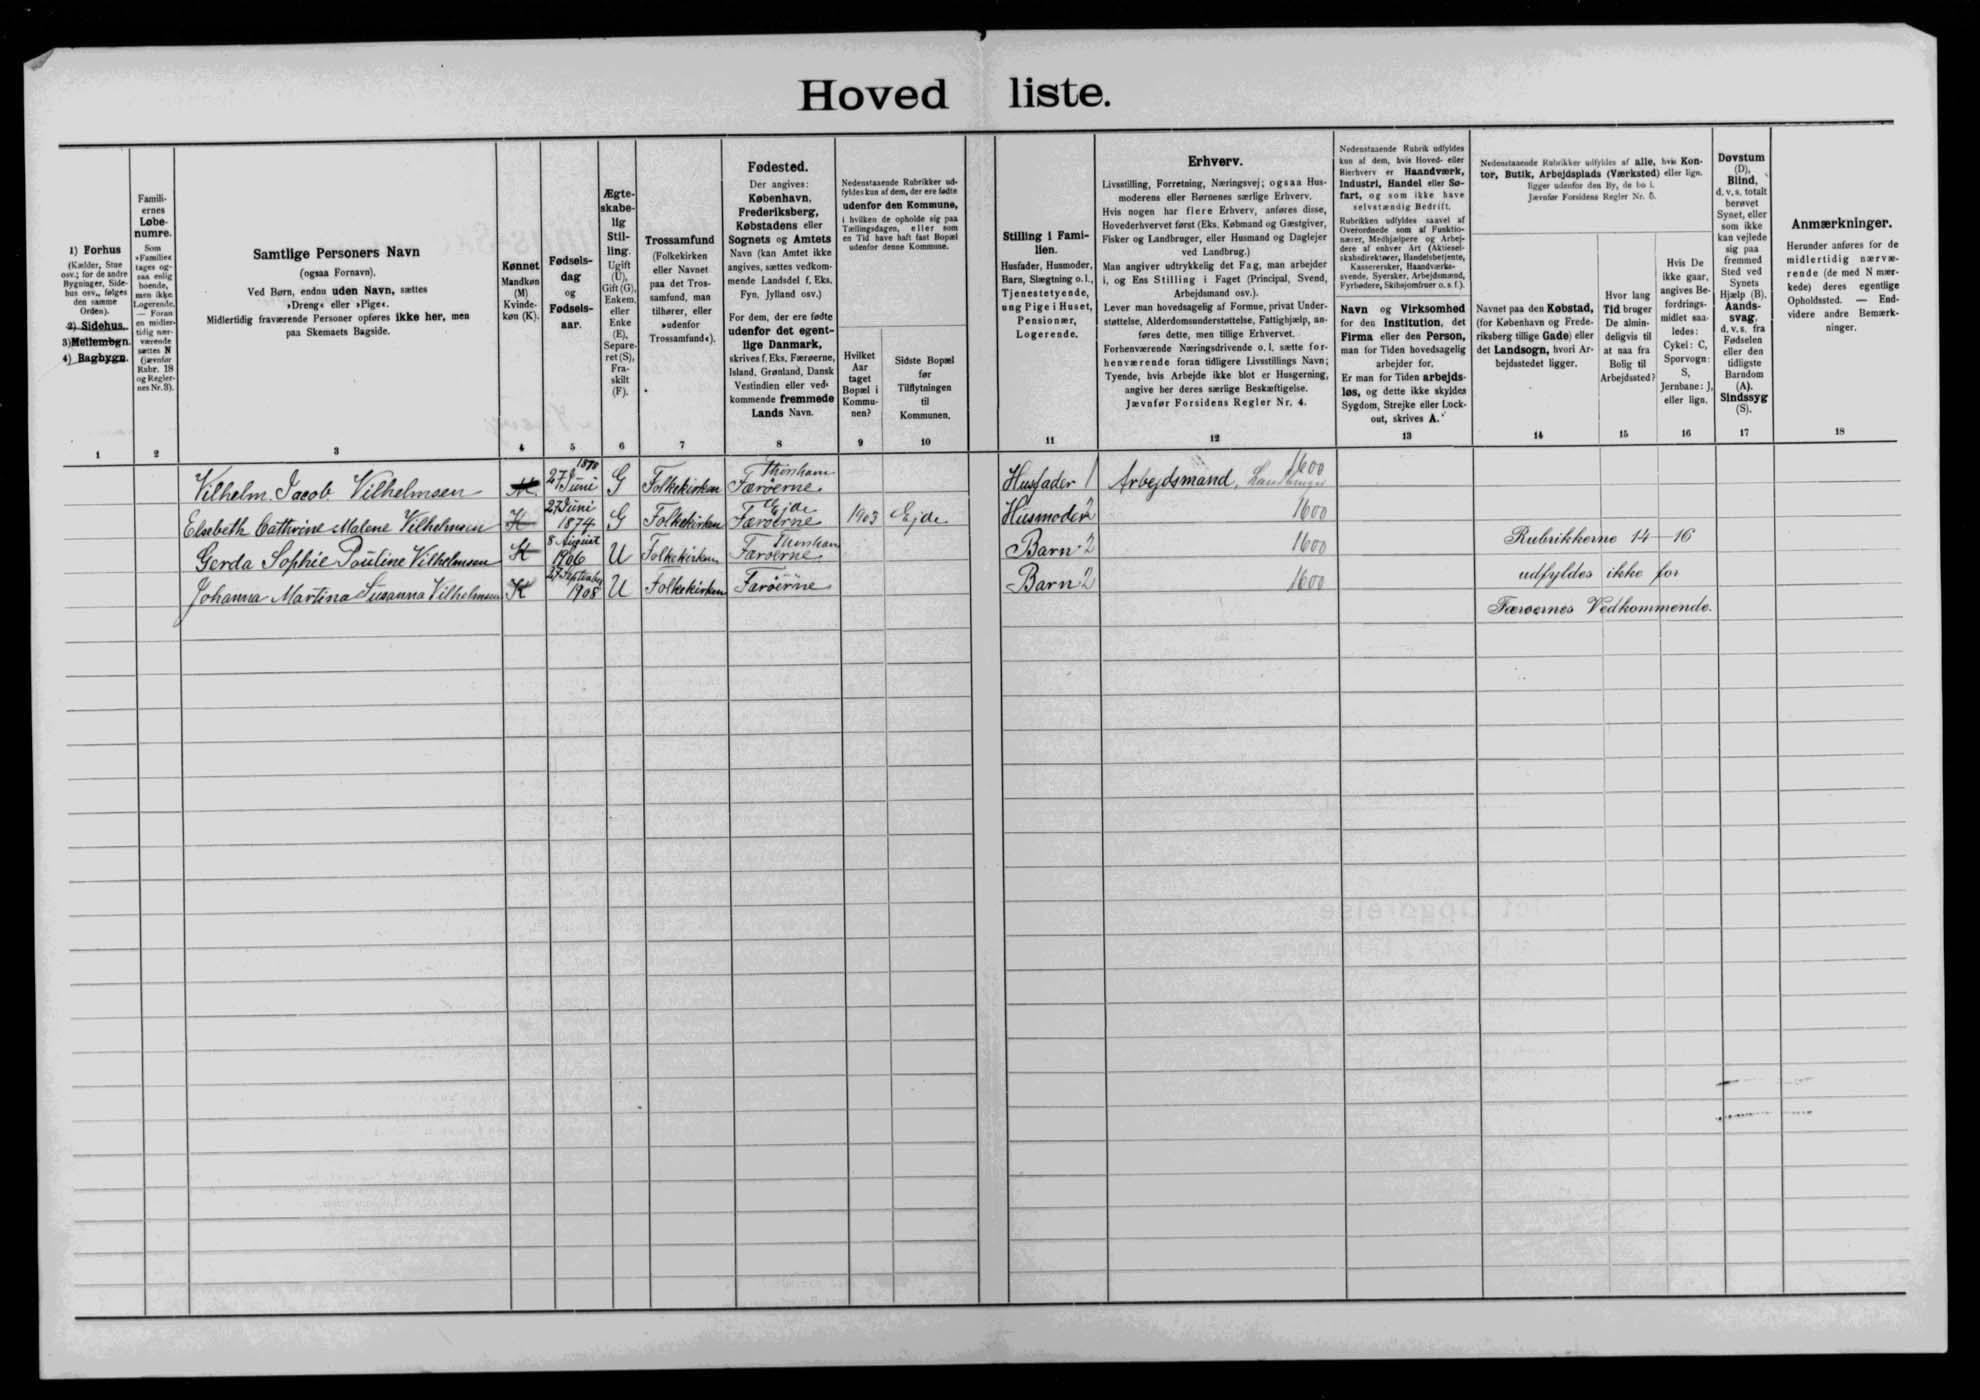 Hovedliste.
1) Forhus
(Kælder, Stue
osv.; for de andre
Bygninger, Side-
hus osv., følges
den samme
Orden).
2) Sidehus.
3) Mellembgn.
4) Bagbygn.
1
Famili-
ernes
Løbe-
numre.
Som
»Familie«
tages og-
saa enlig
boende,
men ikke
Logerende.
— Foran
en midler-
tidig nær-
værende
sættes N
(jævnfør
Rubr. 18
og Regler-
nes Nr. 3).
2
Samtlige Personers Navn
(ogsaa Fornavn).
Ved Børn, endnu uden Navn, sættes
»Dreng« eller »Pige«.
Midlertidig fraværende Personer opføres ikke her, men
paa Skemaets Bagside.
3
Kønnet
Mandkøn
(M)
Kvinde-
køn (K).
4
Fødsels-
dag
og
Fødsels-
aar.
5
Ægte-
skabe-
lig
Stil-
ling.
Ugift
(U),
Gift (G),
Enkem.
eller
Enke
(E),
Separe-
ret (S),
Fra-
skilt
(F).
6
Trossamfund
(Folkekirken
eller Navnet
paa det Tros-
samfund, man
tilhører, eller
»udenfor
Trossamfund«).
7
Fødested.
Der angives:
København,
Frederiksberg,
Købstadens eller
Sognets og Amtets
Navn (kan Amtet ikke
angives, sættes vedkom-
mende Landsdel f. Eks.
Fyn, Jylland osv.)
For dem, der ere fødte
udenfor det egent-
lige Danmark,
skrives f. Eks. Færøerne,
Island, Grønland, Dansk
Vestindien eller ved-
kommende fremmede
Lands Navn.
8
Nedenstaaende Rubrikker ud-
fyldes kun af dem, der ere fødte
udenfor den Kommune,
i hvilken de opholde sig paa
Tællingsdagen, eller som
en Tid have haft fast Bopæl
udenfor denne Kommune.
Hvilket
Aar
taget
Bopæl i
Kommu-
nen?
9
Sidste Bopæl
før
Tilflytningen
til
Kommunen.
10
Stilling i Fami-
lien.
Husfader, Husmoder,
Barn, Slægtning o. l.,
Tjenestetyende,
ung Pige i Huset,
Pensionær,
Logerende.
11
Erhverv.
Livsstilling, Forretning, Næringsvej; ogsaa Hus-
moderens eller Børnenes særlige Erhverv.
Hvis nogen har flere Erhverv, anføres disse,
Hovederhvervet først (Eks. Købmand og Gæstgiver,
Fisker og Landbruger, eller Husmand og Daglejer
ved Landbrug.)
Man angiver udtrykkelig det Fag, man arbejder
i, og Ens Stilling i Faget (Principal, Svend,
Arbejdsmand osv.).
Lever man hovedsagelig af Formue, privat Under-
støttelse, Alderdomsunderstøttelse, Fattighjælp, an-
føres dette, men tillige Erhvervet.
Forhenværende Næringsdrivende o. l. sætte for-
henværende foran tidligere Livsstillings Navn;
Tyende, hvis Arbejde ikke blot er Husgerning,
angive her deres særlige Beskæftigelse.
Jævnfør Forsidens Regler Nr. 4.
12
Nedenstaaende Rubrik udfyldes
kun af dem, hvis Hoved- eller
Bierhverv er Haandværk,
Industri, Handel eller Sø-
fart, og som ikke have
selvstændig Bedrift.
Rubrikken udfyldes saavel af
Overordnede som af Funktio-
nærer, Medhjælpere og Arbej-
dere af enhver Art (Aktiesel-
skabsdirektører, Handelsbetjente,
Kasserersker, Haandværks-
svende, Syersker, Arbejdsmænd,
Fyrbødere, Skibsjomfruer o. s. f.).
Navn og Virksomhed
for den Institution, det
Firma eller den Person,
man for Tiden hovedsagelig
arbejder for.
Er man for Tiden arbejds-
løs, og dette ikke skyldes
Sygdom, Strejke eller Lock-
out, skrives A.
13
Nedenstaaende Rubrikker udfyldes af alle, hvis Kon-
tor, Butik, Arbejdsplads (Værksted) eller lign.
ligger udenfor den By, de bo i.
Jævnfør Forsidens Regler Nr. 5.
Navnet paa den Købstad,
(for København og Frede-
riksberg tillige Gade) eller
det Landsogn, hvori Ar-
bejdsstedet ligger.
14
Hvor lang
Tid bruger
De almin-
deligvis til
at naa fra
Bolig til
Arbejdssted?
15
Hvis De
ikke gaar,
angives Be-
fordrings-
midlet saa-
ledes:
Cykel: C,
Sporvogn:
S,
Jernbane: J,
eller lign.
16
Døvstum
(D),
Blind,
d. v. s. totalt
berøvet
Synet, eller
som ikke
kan vejlede
sig paa
fremmed
Sted ved
Synets
Hjælp (B).
Aands-
svag,
d. v. s. fra
Fødselen
eller den
tidligste
Barndom
(A).
Sindssyg
(S).
17
Anmærkninger.
Herunder anføres for de
midlertidig nærvæ-
rende (de med N mær-
kede) deres egentlige
Opholdssted. — End-
videre andre Bemærk-
ninger.
18
Vilhelm Jacob Vilhelmsen M 27 Juni 1878 G Folkekirken Thorshavn Færøerne. Husfader 1 Arbejdsmand, 1600
Elsebeth Cathrine Malene Vilhelmsen K 27 Juni 1874 G Folkekirken Ejde Færøerne 1903 Ejde Husmoder 2 1600
Gerda Sophie Pouline Vilhelmsen K 8 August 1906 U Folkekirken Thorshavn Færøerne Barn 2 1600
Johanna Martina Susanna Vilhelmsen K 27 September 1908 U Folkekirken Færøerne Barn 2 1600
Rubrikkerne 14-16
udfyldes ikke for
Færøernes Vedkommende.